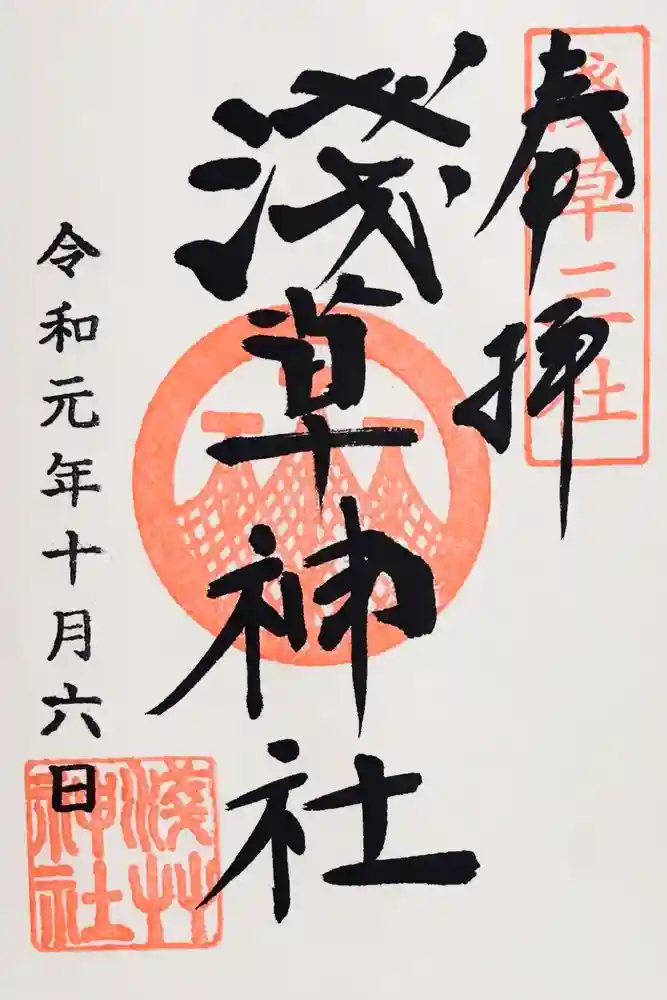 奉拝
淺草三社
淺草神社
令和元年十月六日
淺艸神社